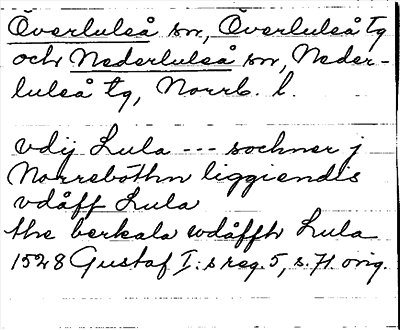 Överluleå sn, Överluleå tg
och Nederluleå sn, Neder-
luleå tg, Norrb. l.
vdij Lula --- sochner j
Norrebothn liggiendis
vdåff Lula
the berkala vdåffth Lula
1528 Gustaf I:s reg. 5, s. 71. orig.